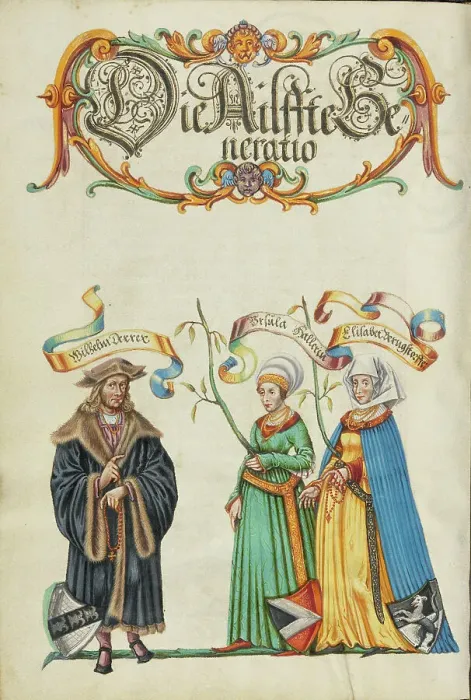 Die Ailffte Ge/
neratio
Wilhelm Derrer
Vrsula Hallerin
Elisabet